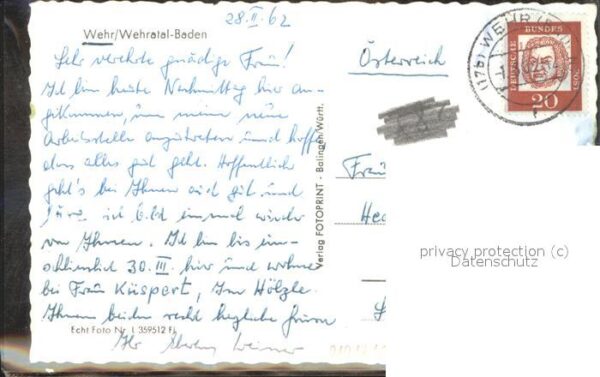 28.II.62
Wehr/Wehratal-Baden
Sehr verehrte gnädige Frau!
Ich bin heute Nachmittag hier an-
gekommen, um meine neue
Arbeitsstelle anzutreten und hoffe,
dass alles gut geht. Hoffentlich
geht's bei Ihnen auch gut und
höre ich bald einmal wieder
von Ihnen. Ich bin bis ein-
schliesslich 30. III. hier und wohne
bei Frau Küspert, Im Hölzle.
Ihnen beiden recht herzliche Grüsse
Ihr
Echt Foto Nr. L 359512 Fj.
Verlag FOTOPRINT · Balingen/Württ.
Österreich
Frau
(17b) WEHR (BADEN)
DEUTSCHE BUNDESPOST
20
privacy protection (c)
Datenschutz